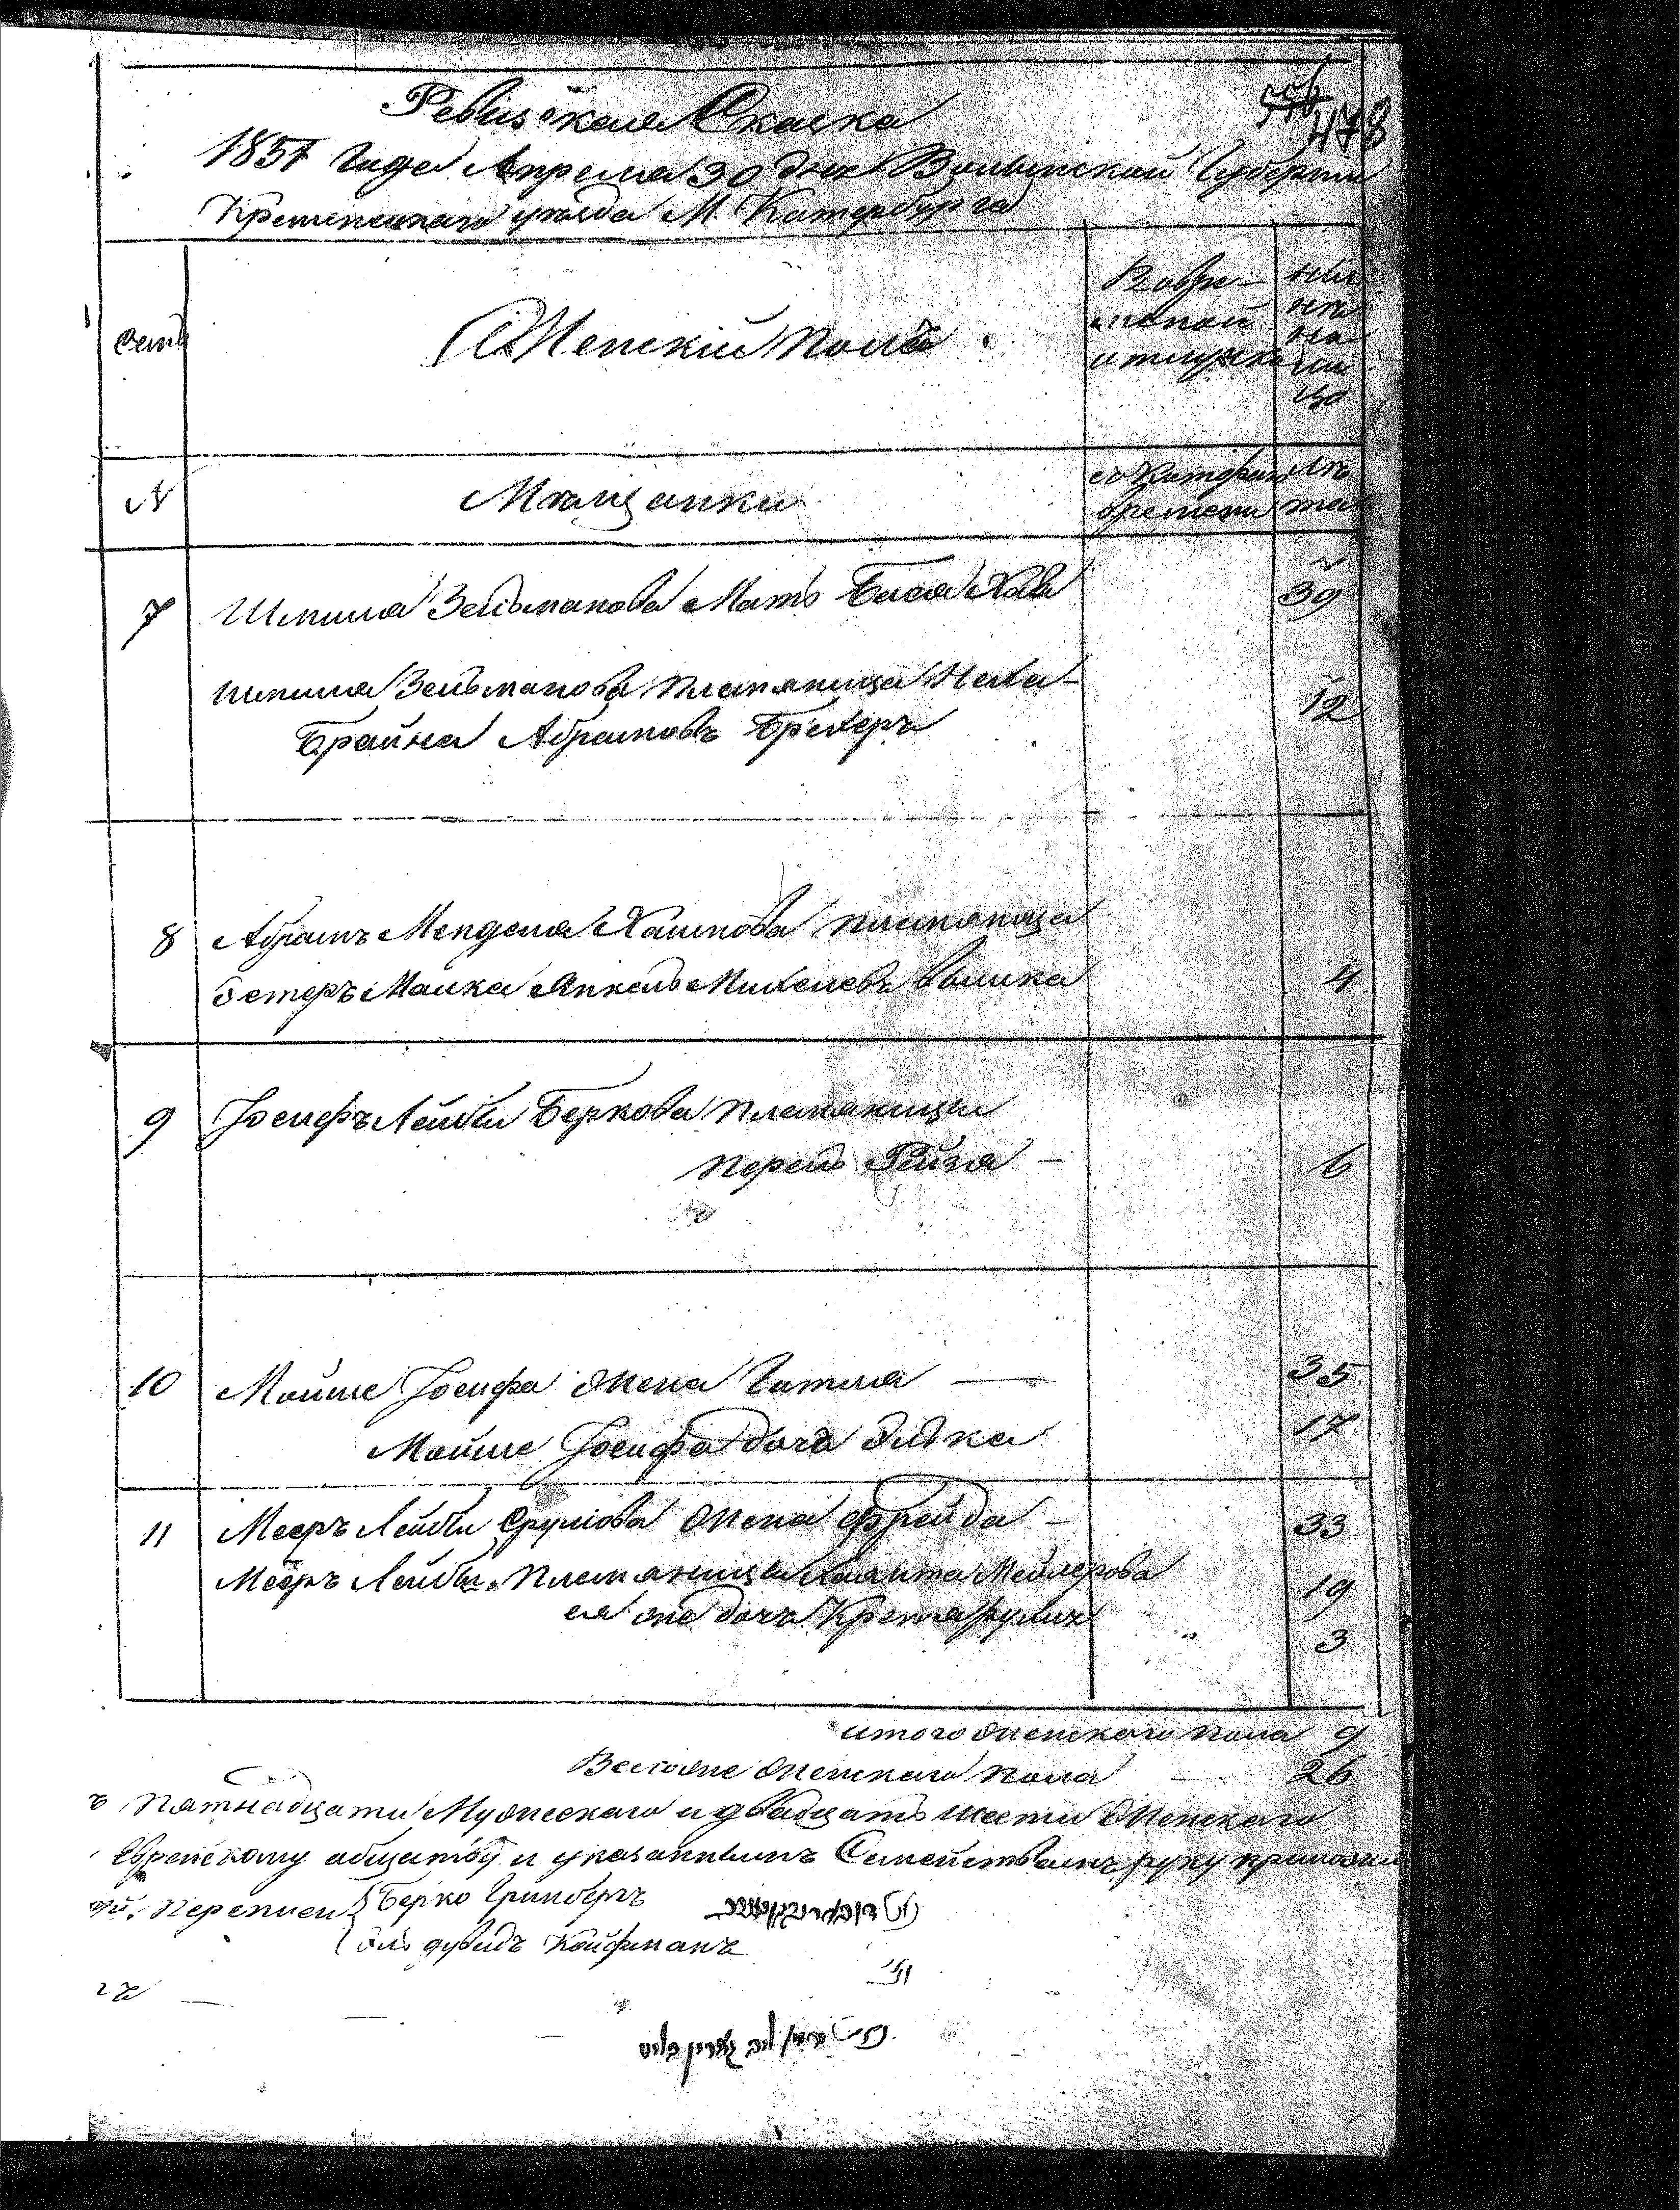 556
478
Ревизская Сказка
1851 Года Апреля 30 дня Волынской Губернии
Кременецкаго уезда М. Катербурга
семь
Женскій полъ
Во вре
менной
отлучке
ныи
не
на
ли
цо
№
Мещанки
съ Котораго
времени
Ле
та
7
Шмиля Зельманова Мать Бася Хава
39
Шмиля Зельманова племяница Неха
Брайна Абрамовъ Брехеръ
12
8
Абрамъ Менделя Хаимова племяница
Эстеръ Малка Янкель Михелевъ
4
9
Іосифъ Лейбы Беркова племяницы
Перель Рейзя —
6
10
Мойше Іосифа жена Гитля —
35
Мойше Іосифа дочь Эидка
17
11
Мееръ Лейбы Срулiова жена Фрейда —
33
Мееръ Лейбы племяница Мейлерова
19
ея же дочь
3
итого женскаго пола 9
Всего же женскаго пола 26
ъ пятнадцати Мужескаго и двадцать шести Женскаго
Еврейскому обществу и указаннымъ Семействамъ руку приложи
Переписи Берко Гринбергъ
дувидъ Койфманъ